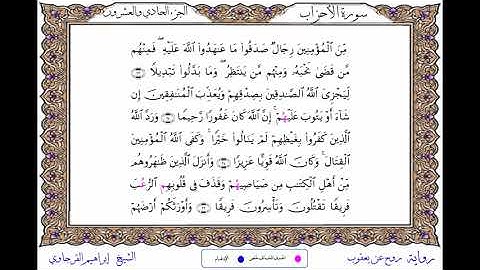 سورة الأحزاب
الجزء الحادي والعشرون
مِّنَ ٱلْمُؤْمِنِينَ رِجَالٌ صَدَقُوا۟ مَا عَـٰهَدُوا۟ ٱللَّهَ عَلَيْهِ ۖ فَمِنْهُم
مَّن قَضَىٰ نَحْبَهُۥ وَمِنْهُم مَّن يَنتَظِرُ ۖ وَمَا بَدَّلُوا۟ تَبْدِيلًا
لِّيَجْزِىَ ٱللَّهُ ٱلصَّـٰدِقِينَ بِصِدْقِهِمْ وَيُعَذِّبَ ٱلْمُنَـٰفِقِينَ إِن
شَآءَ أَوْ يَتُوبَ عَلَيْهُمْ ۚ إِنَّ ٱللَّهَ كَانَ غَفُورًا رَّحِيمًا وَرَدَّ ٱللَّهُ
ٱلَّذِينَ كَفَرُوا۟ بِغَيْظِهِمْ لَمْ يَنَالُوا۟ خَيْرًا ۚ وَكَفَى ٱللَّهُ ٱلْمُؤْمِنِينَ
ٱلْقِتَالَ ۚ وَكَانَ ٱللَّهُ قَوِيًّا عَزِيزًا وَأَنزَلَ ٱلَّذِينَ ظَـٰهَرُوهُم
مِّنْ أَهْلِ ٱلْكِتَـٰبِ مِن صَيَاصِيهُمْ وَقَذَفَ فِى قُلُوبِهِمِ ٱلرُّعُبَ
فَرِيقًا تَقْتُلُونَ وَتَأْسِرُونَ فَرِيقًا وَأَوْرَثَكُمْ أَرْضَهُمْ
رواية روح عن يعقوب
الإدغام
الشيخ إبراهيم الفرجاوي